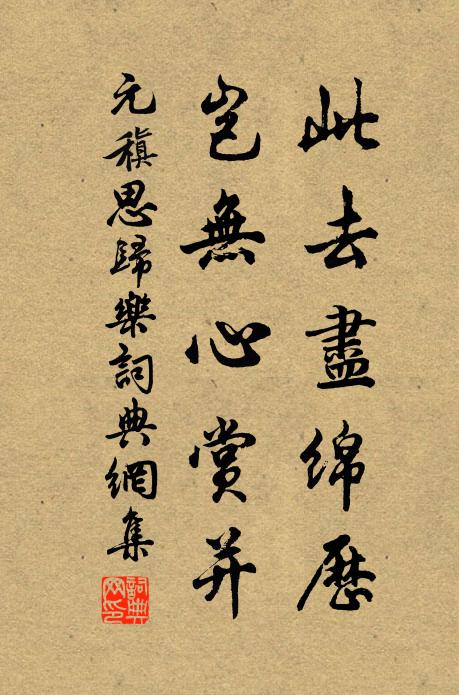 此去盡綿歷
豈無心賞并
元稹思歸樂詞典網集
詞典网印